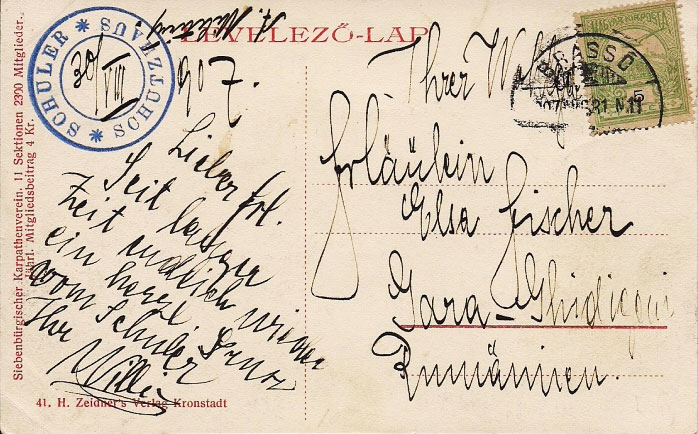 LEVELEZŐ-LAP
MAGYAR KIR. POSTA
5
BRASSÓ
SCHULER * SCHUTZHAUS *
VIII
Lieber Frl.
Seit langer
Zeit endlich wieder
ein herzl.
vom Schuler
Ihr
Willi
Ihrer
Fräulein
Elsa Fischer
Gara-Ghidigeni
Rumänien.
Siebenbürgischer Karpathenverein. 11 Sektionen 2300 Mitglieder.
Jährl. Mitgliedsbeitrag 4 Kr.
41. H. Zeidner's Verlag Kronstadt